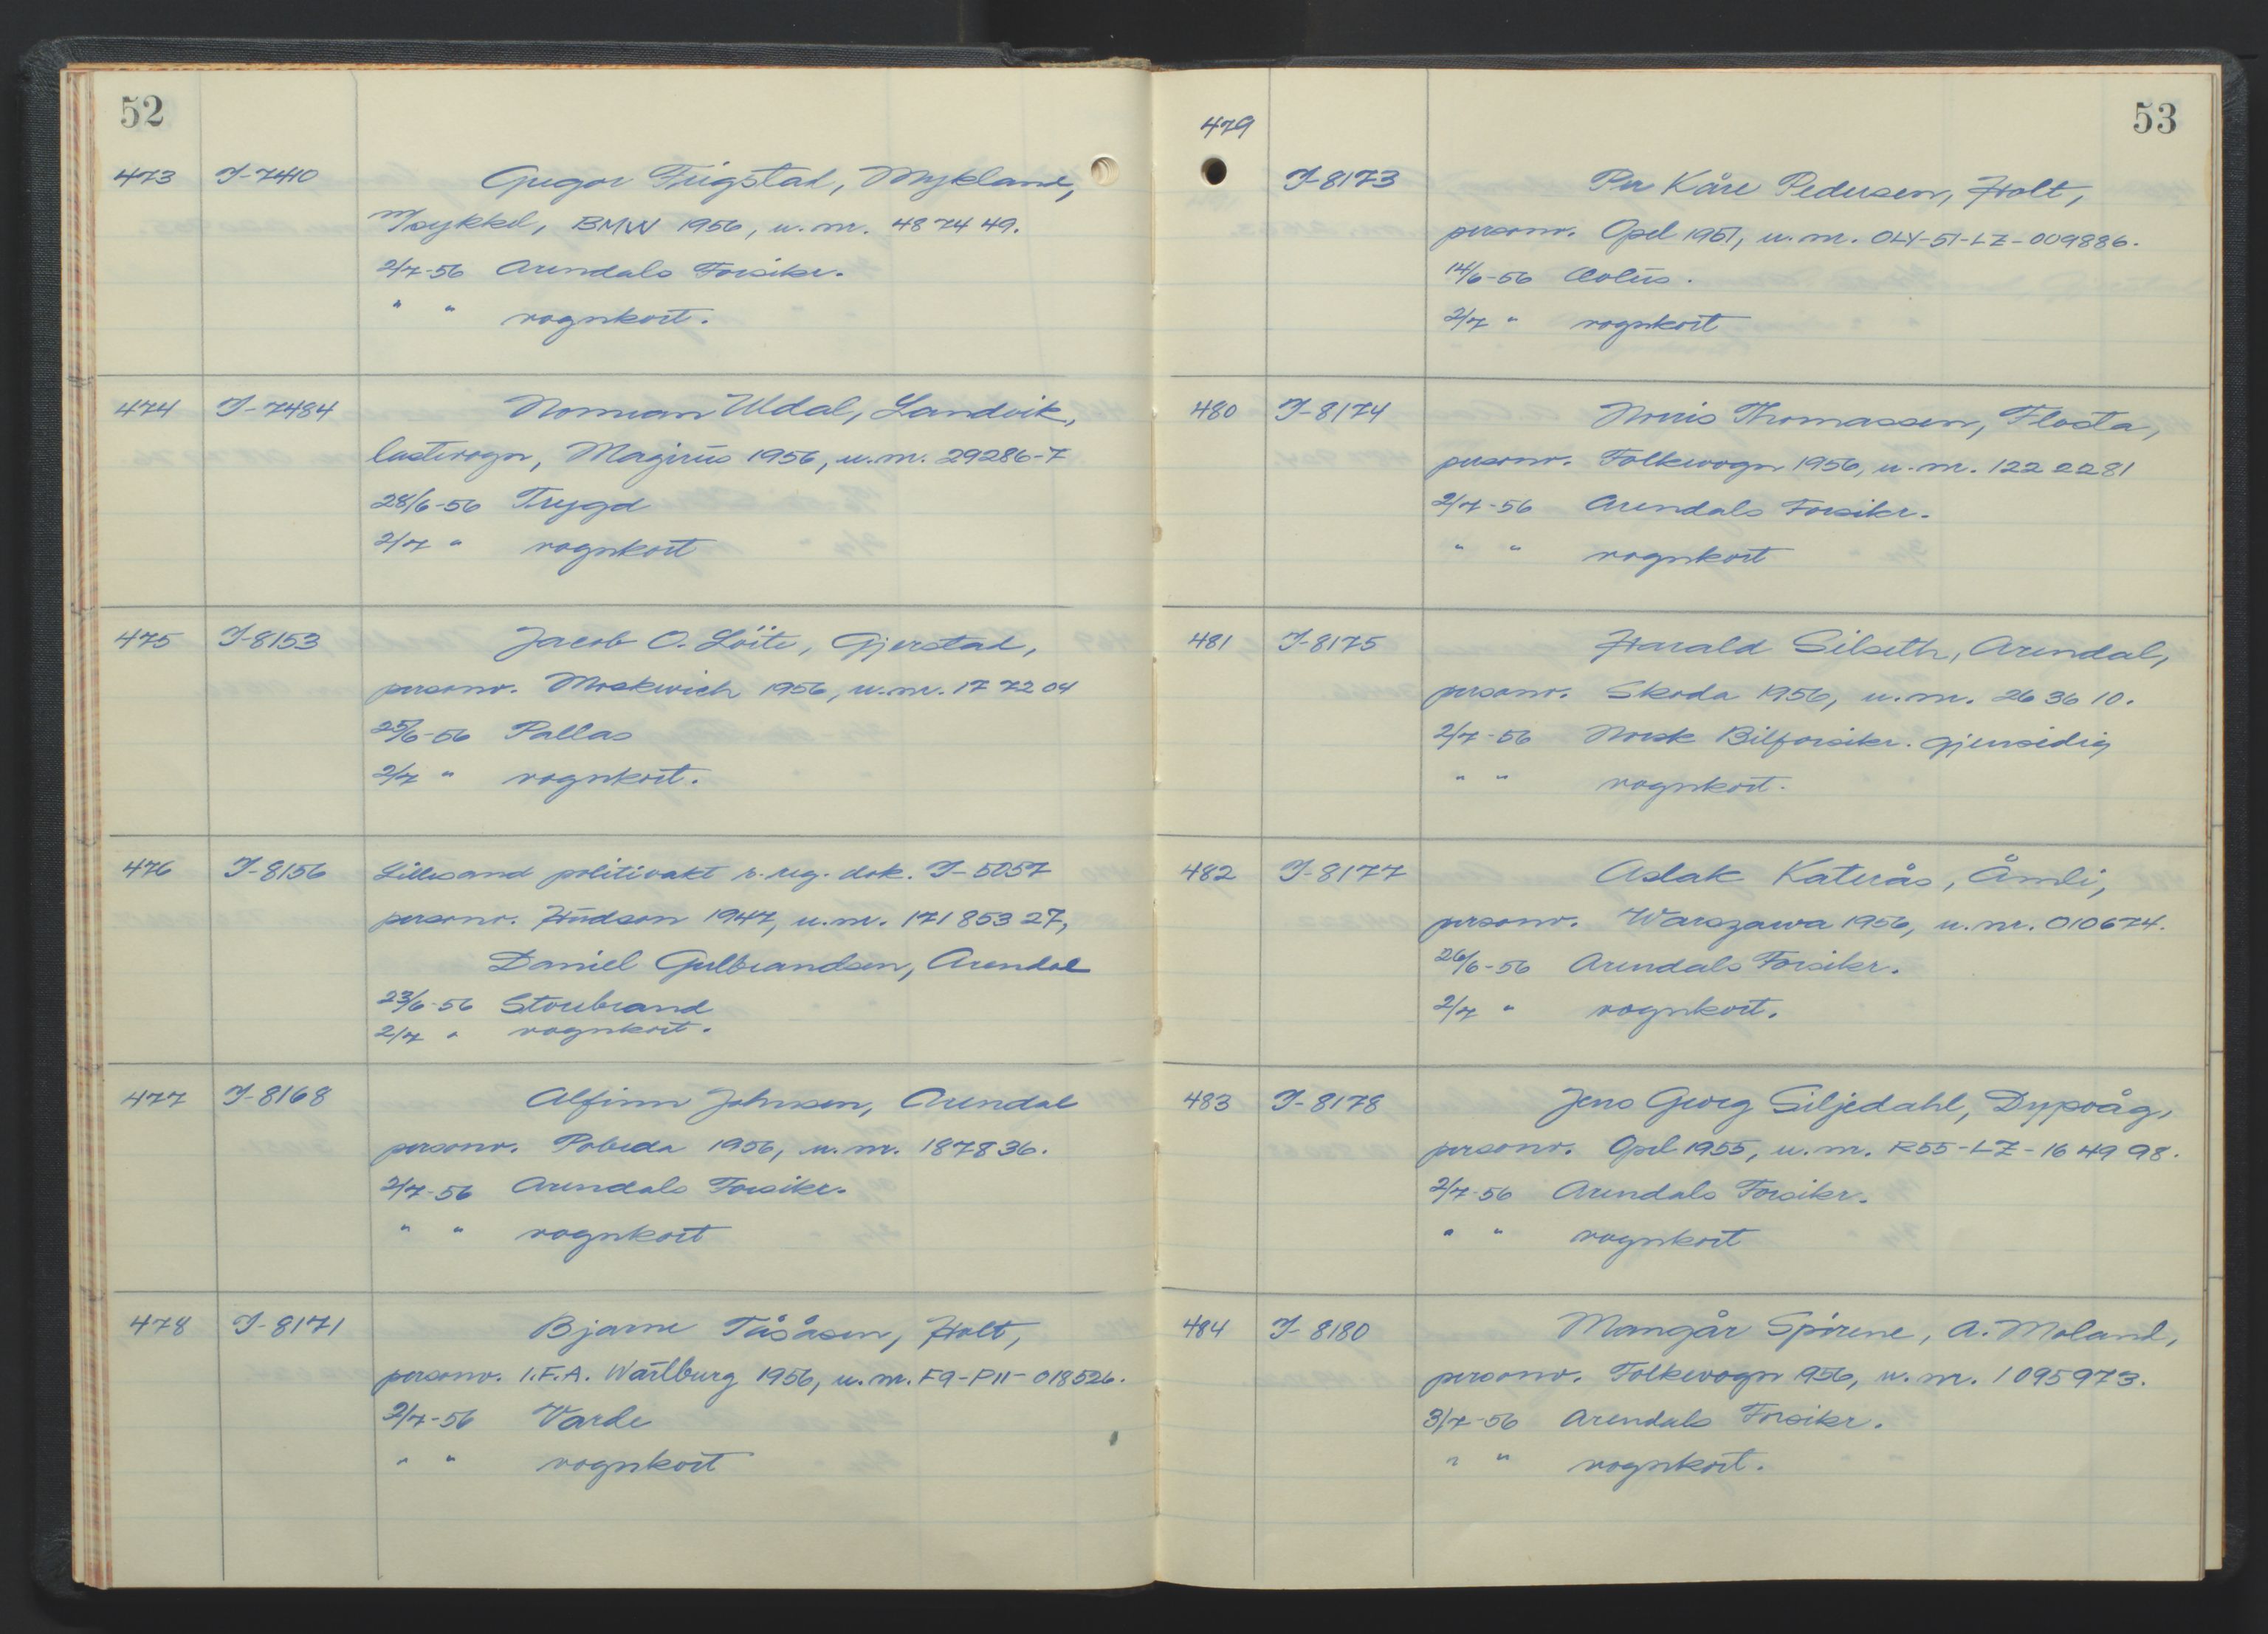 52
473 I-7410 Gregor Frigstad, Mykland,
M/sykkel, BMW 1956, u.nr. 48 74 49.
2/7-56 Arendals Forsikr.
" " vognkort.
474 I-7484 Norman Uldal, Landvik,
lastevogn, Magirus 1956, u.nr. 29286-7
28/6-56 Trygd
2/7 " vognkort
475 I-8153 Jacob O. Löite, Gjerstad,
personv. Moskwich 1956, u.nr. 17 72 04
25/6-56 Pallas
2/7 " vognkort.
476 I-8156 Lillesand politivakt v. reg. dok. I-5057
personv. Hudson 1947, u.nr. 171 853 27,
Daniel Gulbrandsen, Arendal
23/6-56 Storebrand
2/7 " vognkort.
477 I-8168 Alfinn Johnsen, Arendal
personv. Pobeda 1956, u.nr. 187836.
2/7-56 Arendals Forsikr.
" " vognkort
478 I-8171 Bjarne Tåsåsen, Holt,
personv. I.F.A. Wartburg 1956, u.nr. F9-P11-018526.
2/7-56 Varde
" " vognkort
53
479 I-8173 Per Kåre Pedersen, Holt,
personv. Opel 1951, u.nr. OLY-51-LZ-009886.
14/6-56 Æolus.
2/7 " vognkort
480 I-8174 Norris Thomassen, Flosta,
personv. Folkevogn 1956, u.nr. 122 2281
2/7-56 Arendals Forsikr.
" " vognkort
481 I-8175 Harald Silseth, Arendal,
personv. Skoda 1956, u.nr. 26 36 10.
2/7-56 Norsk Bilforsikr. gjensidig
" " vognkort.
482 I-8177 Aslak Katerås, Åmli,
personv. Warszawa 1956, u.nr. 010674.
26/6-56 Arendals Forsikr.
2/7 " vognkort.
483 I-8178 Jens Georg Siljedahl, Dypvåg,
personv. Opel 1955, u.nr. R55-LZ-16 49 98.
2/7-56 Arendals Forsikr.
" " vognkort
484 I-8180 Mangår Spirene, A. Moland,
personv. Folkevogn 956, u.nr. 1095973.
3/7-56 Arendals Forsikr.
" " vognkort.